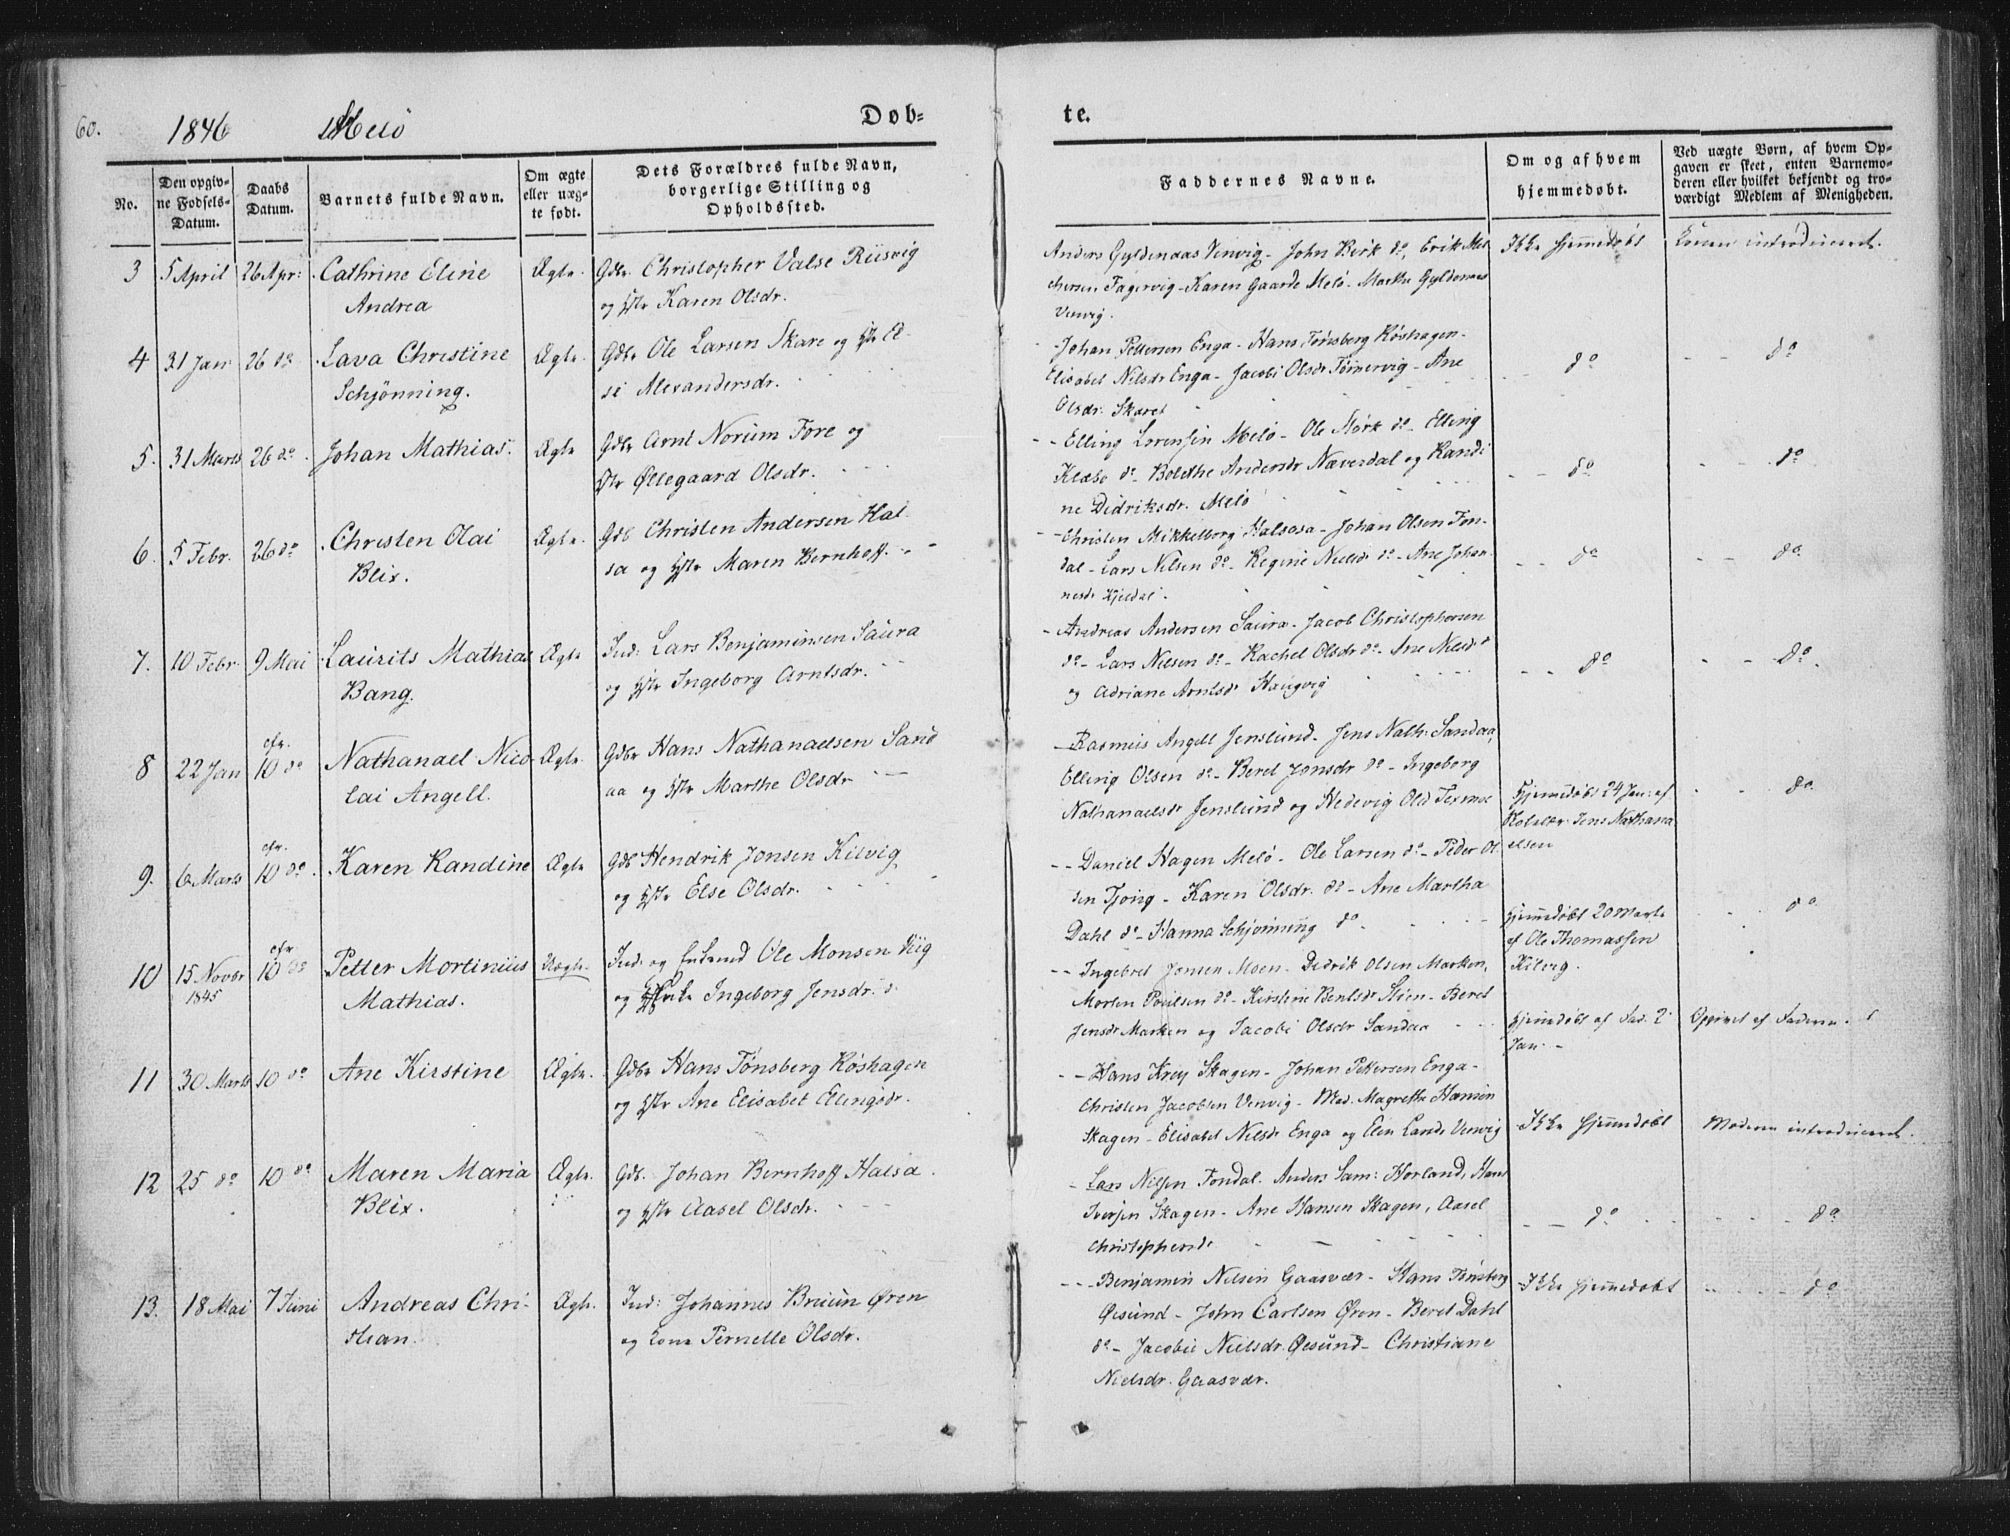 60. 1846 Melö Døb= te.
No. Den opgiv= ne Fødsels= Datum. Daabs Datum. Barnets fulde Navn. Om ægte eller uæg= te født. Dets Forældres fulde Navn, borgerlige Stilling og Opholdssted. Faddernes Navne. Om og af hvem hjemmedøbt. Ved uægte Børn, af hvem Op= gaven er skeet, enten Barnemo= deren eller hvilket bekjendt og tro= værdigt Medlem af Menigheden.
3 5 April 26 Apr: Cathrine Eline Ægte. Gdbr. Christopher Valse Riisvig
Andrea og Hstr Karen Olsdr.
Anders Gyldenaas Venvig - John Berk do, Erik Mel Ikke hjemmedøbt Konen introduceret.
chersen Fagervig - Karen Gaarde Melö - Marthe Gyldenaas
Venvig.
4 31 Jan 26 do Lava Christine Ægte. Gdbr Ole Larsen Skare og Hstr El-
Schjönning. se Alexandersdr.
Johan Pettersen Enga - Hans Tönsberg Röshagen -
Elisabet Nilsdr Enga - Jacobi Olsdr Tömervig - Ane do do
Olsdr. Skaret
5. 31 Marts 26 do. Johan Mathias. Ægte Gdbr Arnt Norum Fore og
Hstr Øllegaard Olsdr.
Elling Lorensen Melö - Ole Mörk do - Elling
Klæbo do - Bolethe Andersdr Næverdal og Randi do do
ne Didriksdr. Melö
6. 5 Febr. 26 do Christen Olai Ægte. Gdb Christen Andersen Hal-
Blix. sa og Hstr Maren Bernhoff.
Christen Mikkelborg Halsosa - Johan Olsen Fon-
dal - Lars Nilsen do - Regine Nielsdr do - Ane Johan- do do
nesdr Kjeldal.
7. 10 Febr. 9 Mai Laurits Mathias Ægte Ind: Lars Benjaminsen Saura
Bang. og Hstr Ingeborg Arntsdr.
Andreas Andersen Saura - Jacob Christophersen
do - Lars Nilsen do - Rachel Olsdr do - Ane Nielsdr do do
og Adriane Arntsdr Haugvig
8 22 Jan efr. 10 do Nathanael Nico- Ægte. Gdbr Hans Nathanaelsen Sand
lai Angell. aa og Hstr Marthe Olsdr
Rasmus Angell Jenslund - Jens Nath: Sandaa,
Elling Olsen do - Beret Jonsdr do - Ingeborg
Nathanaelsdr Jenslund og Hedevig Olsd Texmoe Hjemmedøbt 24 Jan: af do
Jens Nathana
elsen
9. 6 Marts efr. 10 do. Karen Randine Ægte Gdb Hendrik Jonsen Kilvig
og Hstr Else Olsdr.
Daniel Hagen Melö - Ole Larsen do - Peder Ol
sen Tjong - Karen Olsdr. do - Ane Martha
Dahl do - Hanna Schjönning do. Hjemmedøbt 20 Marts do
af Ole Thomassen
Kilvig.
10 15 Novbr 1845 efr 10 do Petter Mortinius Uægte. Ind: og Enkemd Ole Monsen Kiig
Mathias. og Pike Ingeborg Jensdr.
Ingebret Jonsen Moen - Didrik Olsen Marken,
Morten Poulsen do - Kirstine Bentsdr Stien - Beret
Jensdr Marken og Jacobi Olsdr Sandaa Hjemmedøbt af Fad. 2 Opgivet af Faderen.
Jan.
11 30 Marts 10 do Ane Kirstine Ægte. Gdbr Hans Tönsberg Röshagen
og Hstr Ane Elisabet Ellingsdr.
Hans Krey Skagen - Johan Pettersen Enga -
Christen Jacobsen Venvig - Mad. Magrethe Hansen
Skagen - Elisabet Nilsdr Enga og Elen Lands Venvig Ikke hjemmedøbt Moderen introduceret.
12 25 do 10 do Maren Maria Ægte. Gdb. Johan Bernhoff Halsa
Blix. og Hstr Aasel Olsdr.
Lars Nilsen Fondal. Anders Sam: Horland, Hans
Iversen Skagen - Ane Hansen Skagen, Aasel do do
Christophersdr
13. 18 Mai 7 Juni Andreas Chri- Ægte. Ind: Johannes Bruun Øren
stian. og Kone Pernelle Olsdr.
Benjamin Nilsen Gaasvær - Hans Tönsberg Ikke hjemmedøbt do
Øesund - John Carlsen Øren - Beret Dahl
do - Jacobie Nielsdr. Øesund - Christiane
Nielsdr. Gaasvær.